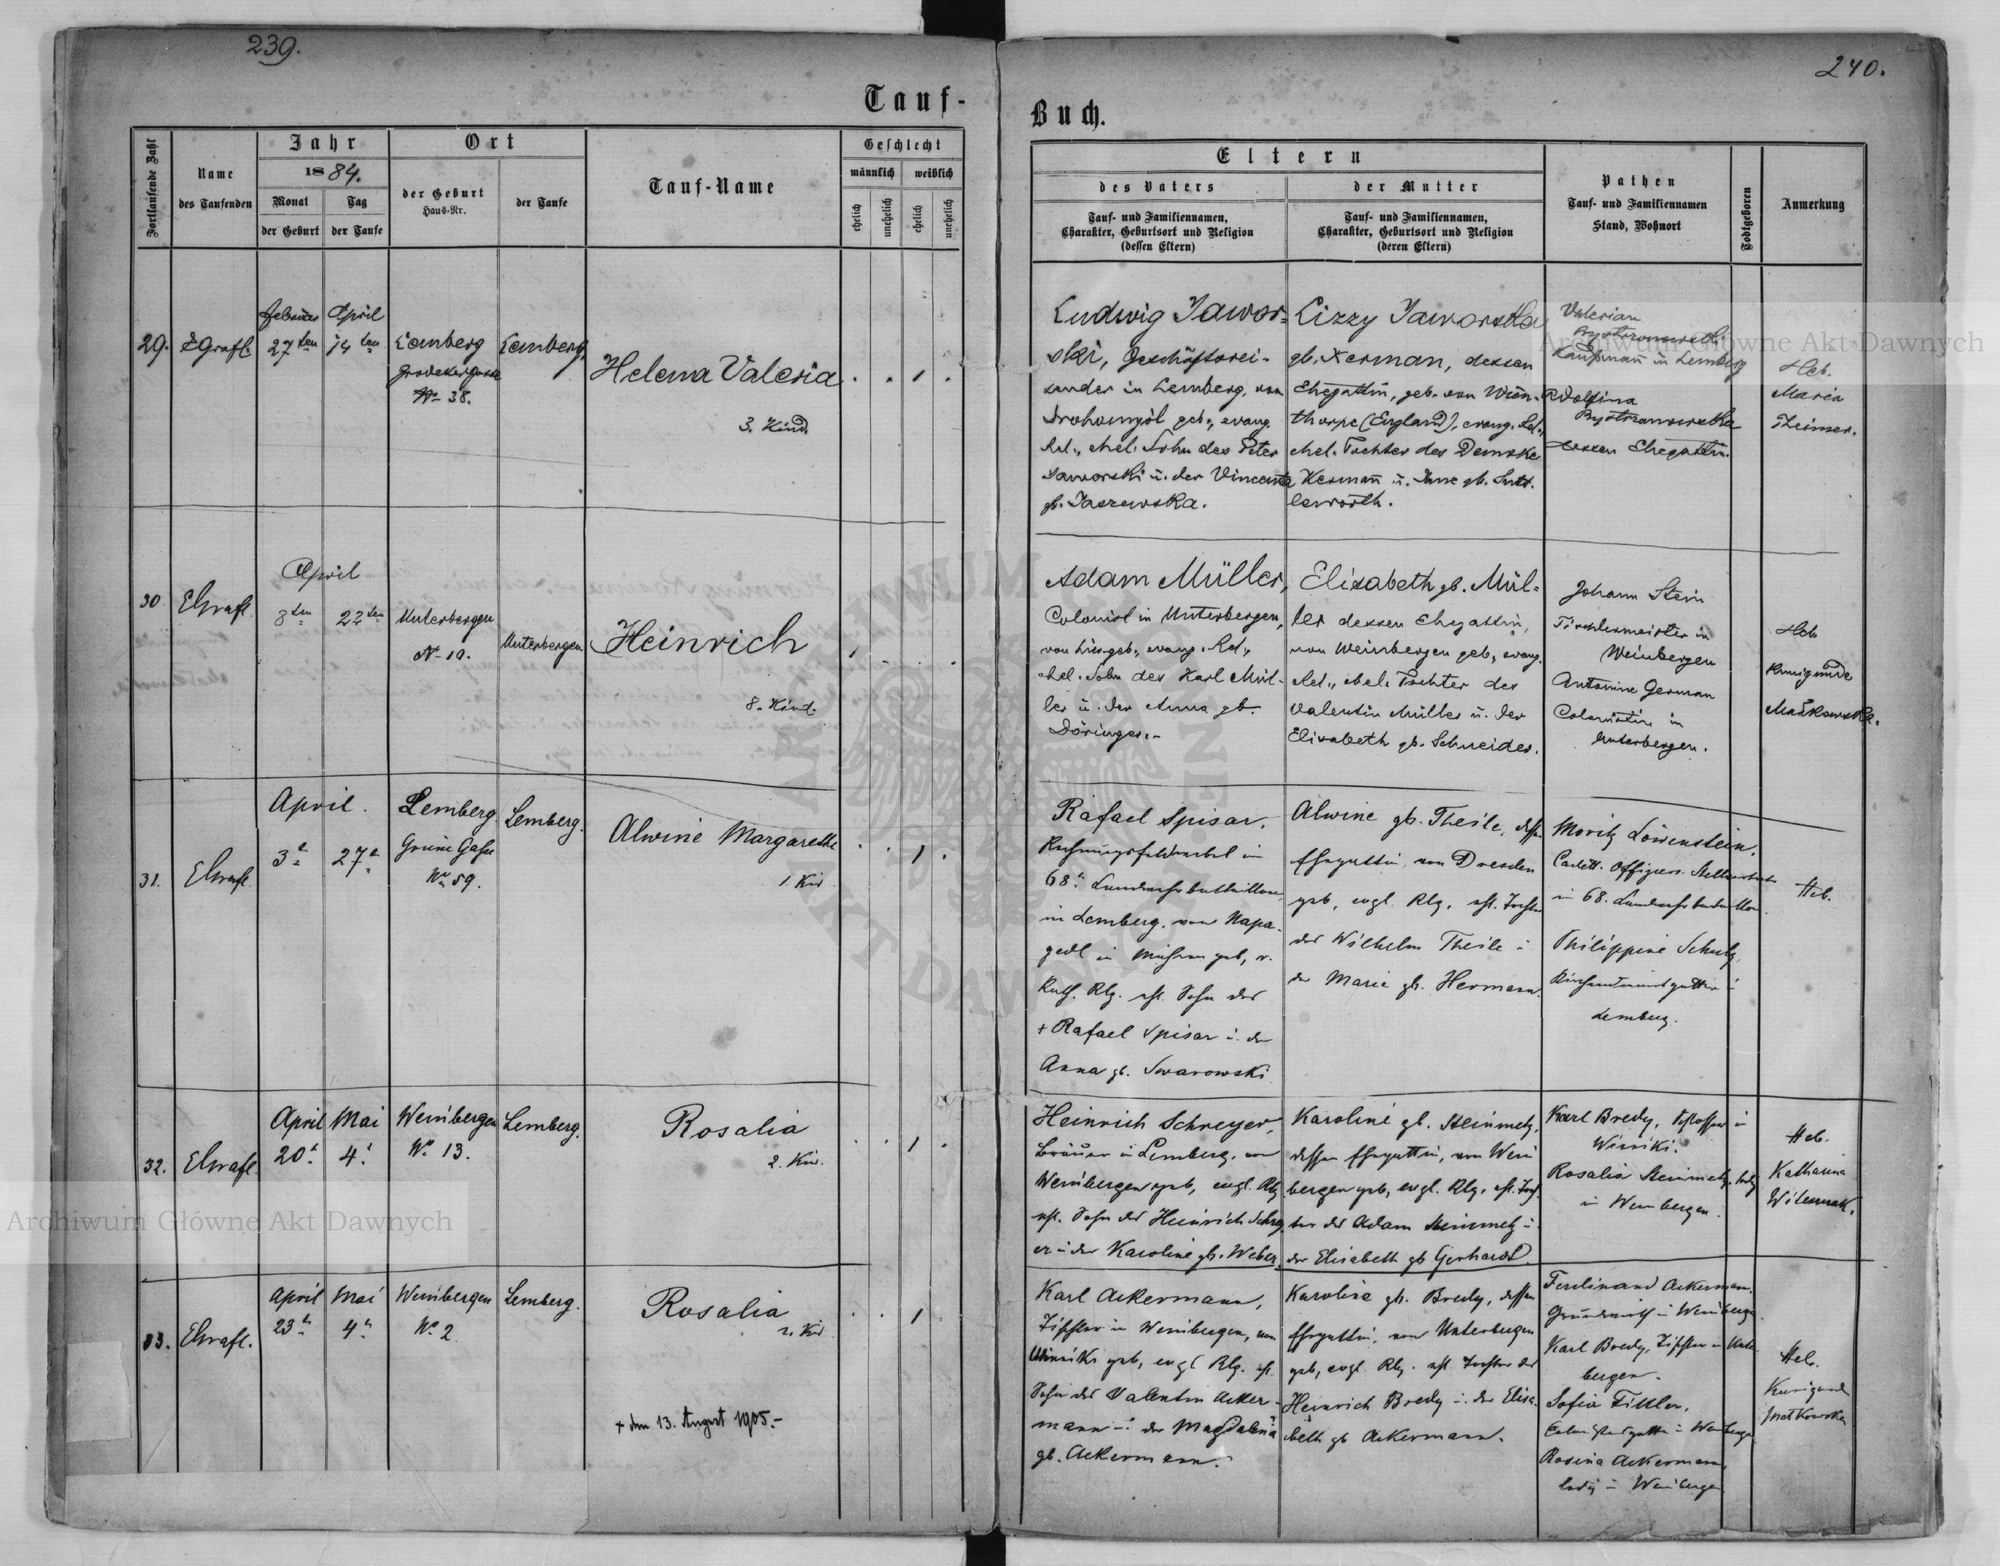 239.
240.
Tauf-
Buch.
Fortlaufende Zahl
Name
des Taufenden
Jahr
1884.
Monat
der Geburt
Tag
der Taufe
Ort
der Geburt
Haus-Nr.
der Taufe
Tauf-Name
Geschlecht
männlich
weiblich
ehelich
unehelich
ehelich
unehelich
Eltern
des Vaters
Tauf- und Familiennamen,
Charakter, Geburtsort und Religion
(dessen Eltern)
der Mutter
Tauf- und Familiennamen,
Charakter, Geburtsort und Religion
(deren Eltern)
Pathen
Tauf- und Familiennamen
Stand, Wohnort
Todtgeboren
Anmerkung
29.
Februar
27ten
April
14ten
Lemberg
No 38.
Lemberg
Helena Valeria
3. Kind
Ludwig Jawor-
ski, Geschäftsrei-
sender in Lemberg, von
Drohomysl geb., evang.
Rel., ehel. Sohn des Peter
Jaworski u. der Vincenta
gb. Jaszewska.
Lizzy Jaworska
gb. Kerman, dessen
Ehegattin, geb. von
thorpe (England), evang. Rel.,
ehel. Tochter des
Kerman u. Jane gb.
Valerian
Kaufmann in Lemberg
dessen Ehegattin.
Heb.
Maria
Theimer.
30.
April
8ten
22ten
Unterbergen
No 10.
Unterbergen
Heinrich
8. Kind.
Adam Müller,
Colonist in Unterbergen,
von geb., evang. Rel.,
ehel. Sohn des Karl Mül-
ler u. der Anna gb.
Döringer.-
Elisabeth gb. Mül-
ler dessen Ehegattin,
von Weinbergen geb., evang.
Rel., ehel. Tochter des
Valentin Müller u. der
Elisabeth gb. Schneider.
Johann Stein
Tischlermeister in
Weinbergen
Antonine German
Colonistin in
Unterbergen.
Heb.
Kunigunde
31.
April.
3t
27t
Lemberg.
Grüne Gasse
No 59.
Lemberg.
Alwine Margarethe
1. Kind
Rafael Spisar,
Rechnungsfeldwebel im
68t. Landwehrbataillon
in Lemberg, von Napa-
gedl in Mähren geb, r.
Kath. Rlg. ehl. Sohn des
+ Rafael Spisar u. der
Anna gb. Swarowski
Alwine gb. Theile, dessen
Ehegattin, von Dresden
geb, evgl. Rlg. ehl. Tochter
des Wilhelm Theile u.
der Marie gb. Hermann.
Moritz Löwenstein,
Cadett-Offiziers-Stellvertreter
in 68. Landwehrbataillon.
Philippine Schulz,
Lemberg.
Heb.
32.
April
20t
Mai
4t
Weinbergen
No 13.
Lemberg.
Rosalia
2. Kind.
Heinrich Schreyer,
Bräuer in Lemberg, von
Weinbergen geb, evgl. Rlg
ehl. Sohn des Heinrich Schrey-
er u. der Karoline gb. Weber.
Karoline gb. Steinmetz,
dessen Ehegattin, von Wein
bergen geb, evgl. Rlg. ehl. Toch-
ter des Adam Steinmetz u.
der Elisabeth gb Gerhardt.
Karl Bredy, Schlosser in
Winniki.
Rosalia Steinmetz, ledig
in Weinbergen.
Heb.
Katharina
33.
April
23t
Mai
4t
Weinbergen
No 2
Lemberg.
Rosalia
2. Kind
+ den 13. August 1905.-
Karl Ackermann,
Tischler in Weinbergen, von
Winniki geb, evgl Rlg. ehl.
Sohn des Valentin Acker-
mann u. der Magdalena
gb. Ackermann.
Karolina gb. Bredy, dessen
Ehegattin, von Unterbergen
geb, evgl. Rlg. ehl Tochter des
Heinrich Bredy u. der Elisa-
beth gb Ackermann.
Ferdinand Ackermann,
Grundwirth in Weinbergen
Karl Bredy, Tischler in Unter
bergen.
Sofia Tittler,
Rosina Ackermann
ledig in Weinbergen
Heb.
Kunigunde
Archiwum Główne Akt Dawnych
Archiwum Główne Akt Dawnych
ARCHIWUM GŁÓWNE AKT DAWNYCH